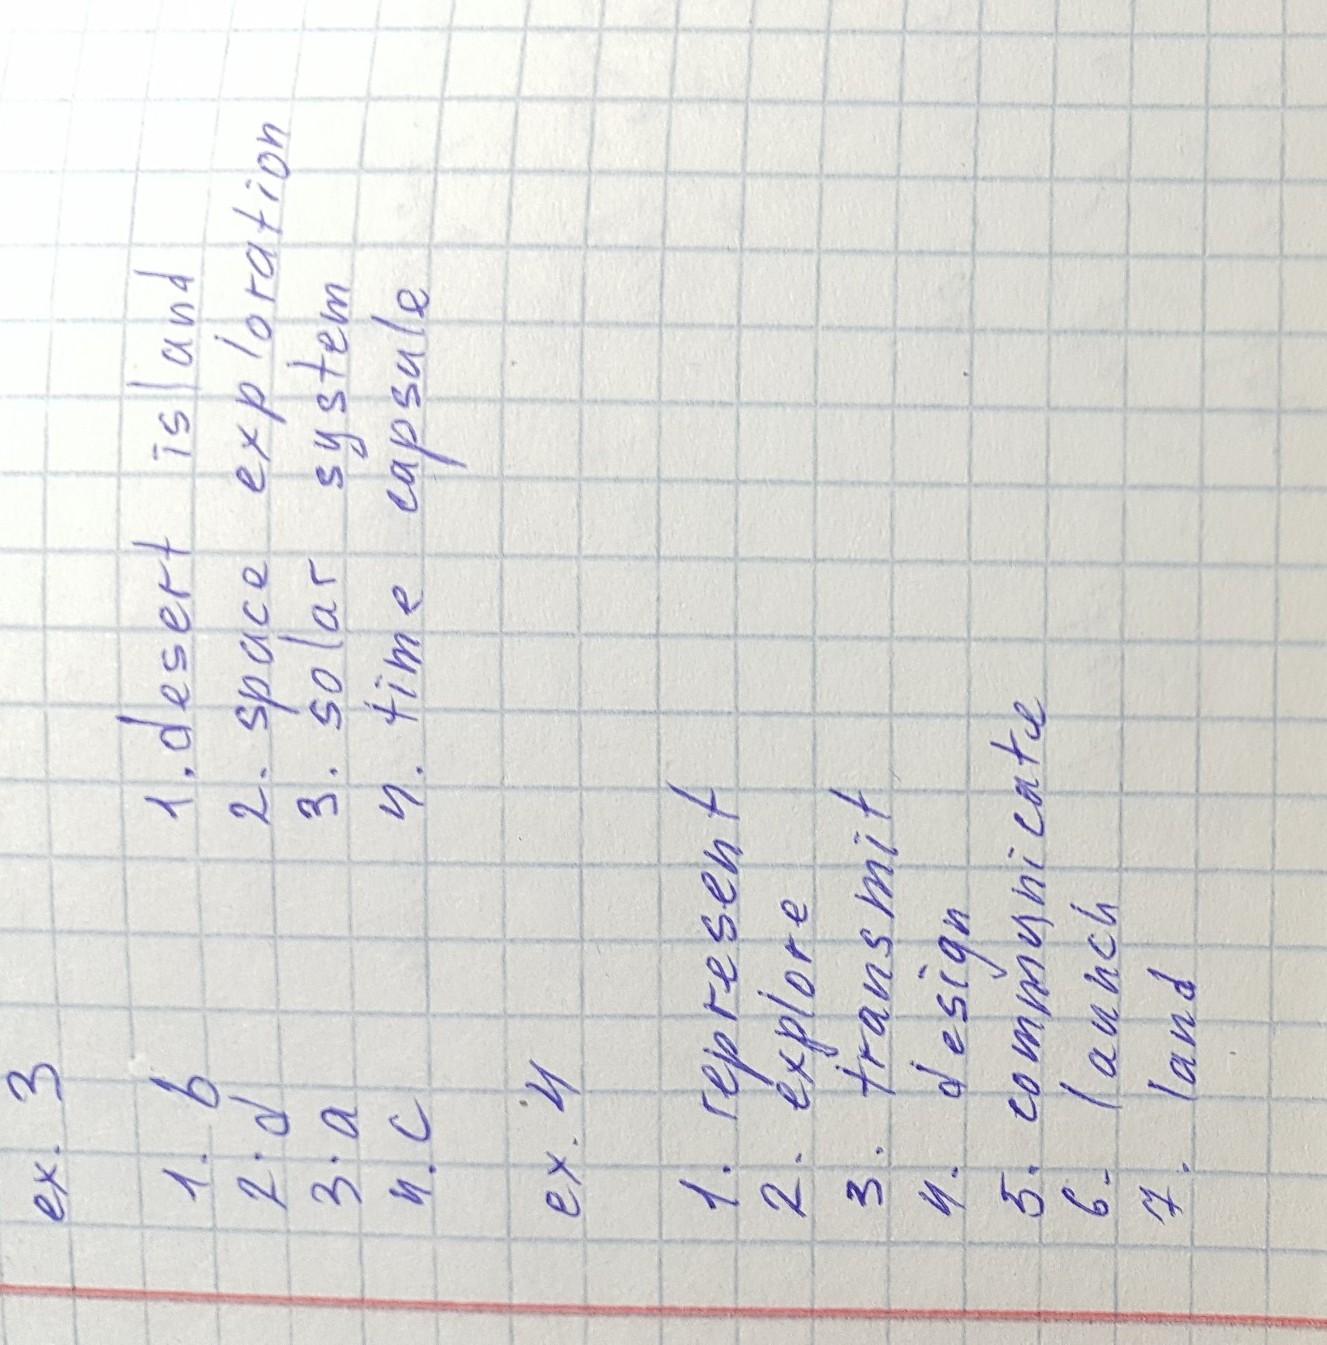 ex. 3
1. b 1. desert island
2. d 2. space exploration
3. a 3. solar system
4. c 4. time capsule
ex. 4
1. represent
2. explore
3. transmit
4. design
5. communicate
6. launch
7. land